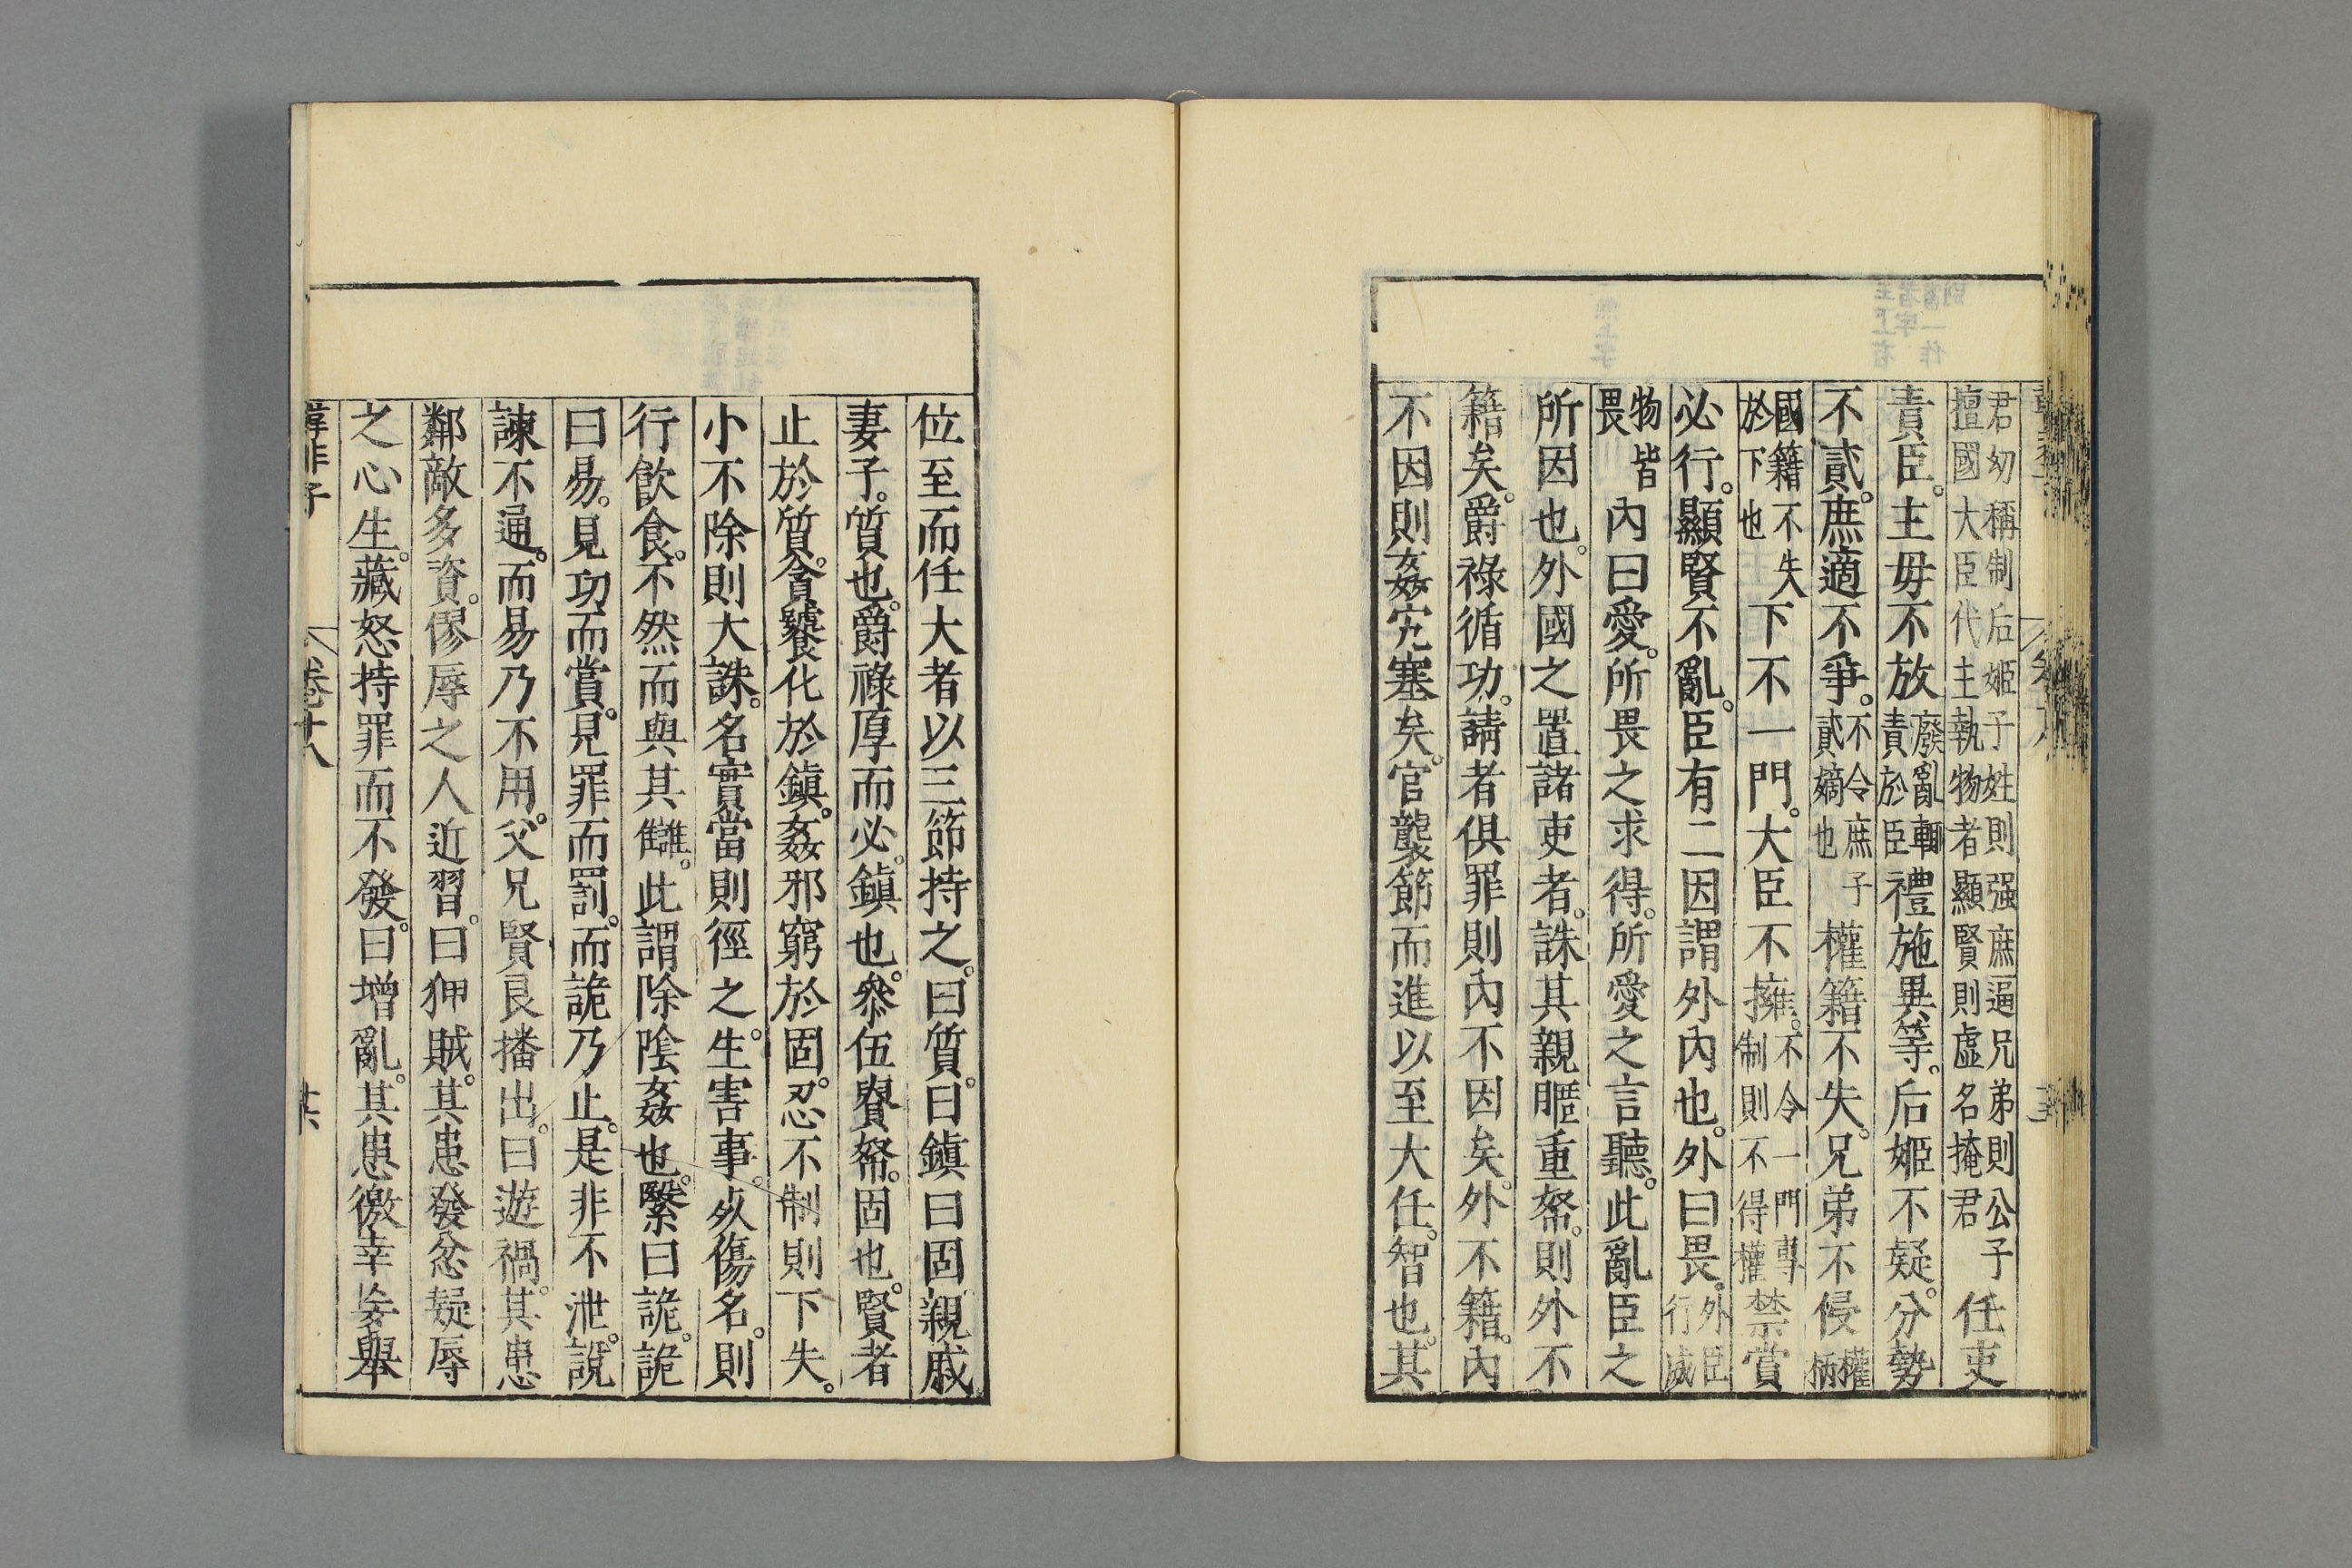 君幼稱制后姬子姓則强庶逼兄弟則公子
擅國大臣代主執物者顯賢則虛名掩君
任吏
責臣。主毋不放
廢亂輒
責於臣
禮施異等。后姬不疑。分勢
不貳。庶適不爭。
不令庶子
貳嫡也
權籍不失。兄弟不侵
權
柄
國籍不失
於下也
下不一門。大臣不擁。
不令一門專
制則不得權
禁賞
必行。顯賢不亂。臣有二因謂外內也。外曰畏。
外臣
行威
物皆
畏
內曰愛。所畏之求得。所愛之言聽。此亂臣之
所因也。外國之置諸吏者。誅其親暱重帑。則外不
籍矣。爵祿循功。請者俱罪則內不因矣。外不籍。內
不因則姦宄塞矣。官襲節而進以至大任。智也。其
位至而任大者以三節持之。曰質。曰鎮曰固親戚
妻子。質也。爵祿厚而必。鎮也。參伍貴帑。固也。賢者
止於質。貪饕化於鎮。姦邪窮於固。忍不制則下失。
小不除則大誅。名實當則徑之。生害事。死傷名。則
行飲食。不然而與其讎。此謂除陰姦也。繄曰詭。詭
曰易。見功而賞。見罪而罰。而詭乃止。是非不泄。說
諫不通。而易乃不用。父兄賢良播出。曰遊禍。其患
鄰敵多資。僇辱之人近習。曰狎賊。其患發忿疑辱
之心生。藏怒持罪而不發。曰增亂。其患徼幸妄舉
韓非子
卷十八
廿六